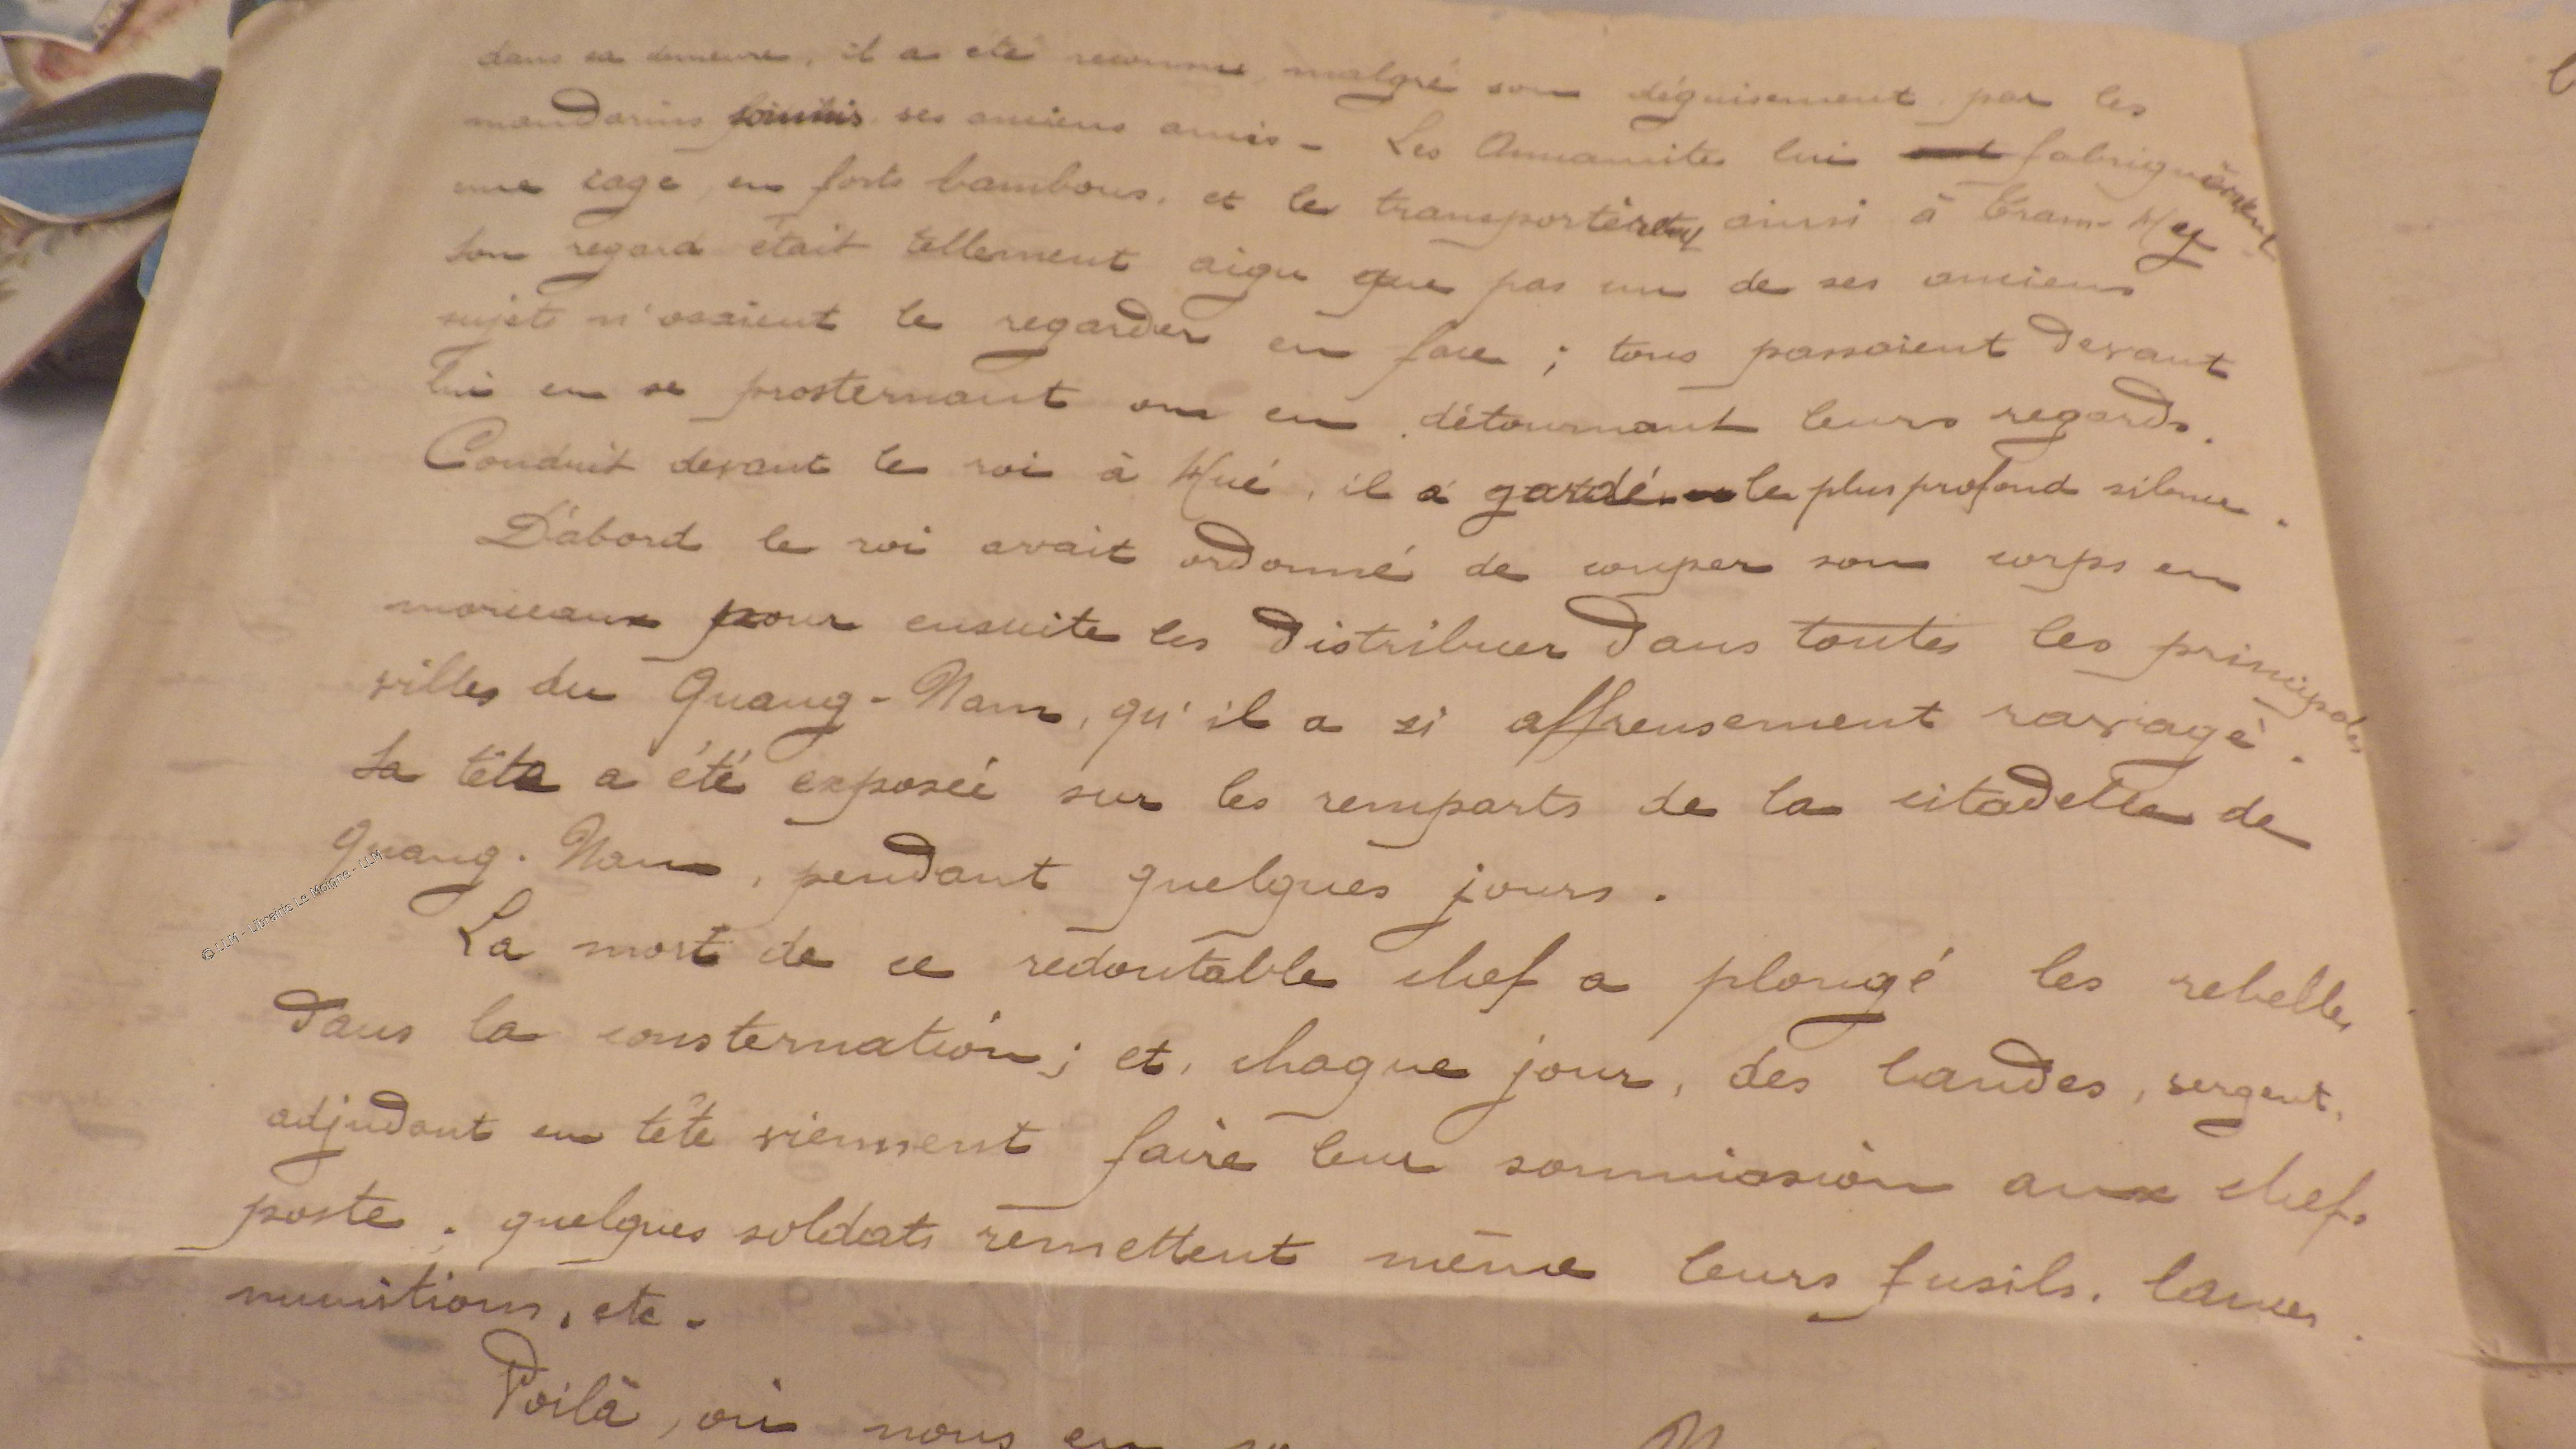 dans sa demeure, il a été reconnu, malgré son déguisement par les
mandarins soumis ses anciens amis - Les Annamites lui fabriquèrent
une cage, en forts bambous, et le transportèrent ainsi à Tram-Hey
Son regard était tellement aigu que pas un de ses anciens
sujets n'osaient le regarder en face ; tous passaient devant
lui en se prosternant ou en détournant leurs regards.
Conduit devant le roi à Hué, il a gardé le plus profond silence.
D'abord le roi avait ordonné de couper son corps en
morceaux pour ensuite les distribuer dans toutes les principales
villes du Quang-Nam, qu'il a si affreusement ravagé.
Sa tête a été exposée sur les remparts de la citadelle de
Quang-Nam, pendant quelques jours.
La mort de ce redoutable chef a plongé les rebelles
dans la consternation ; et, chaque jour, des bandes, sergent,
adjudant en tête viennent faire leur soumission aux chefs
poste ; quelques soldats remettent même leurs fusils, lances
munitions, etc.
Voilà, où nous en
© LLM - Librairie Le Moigne - LLM